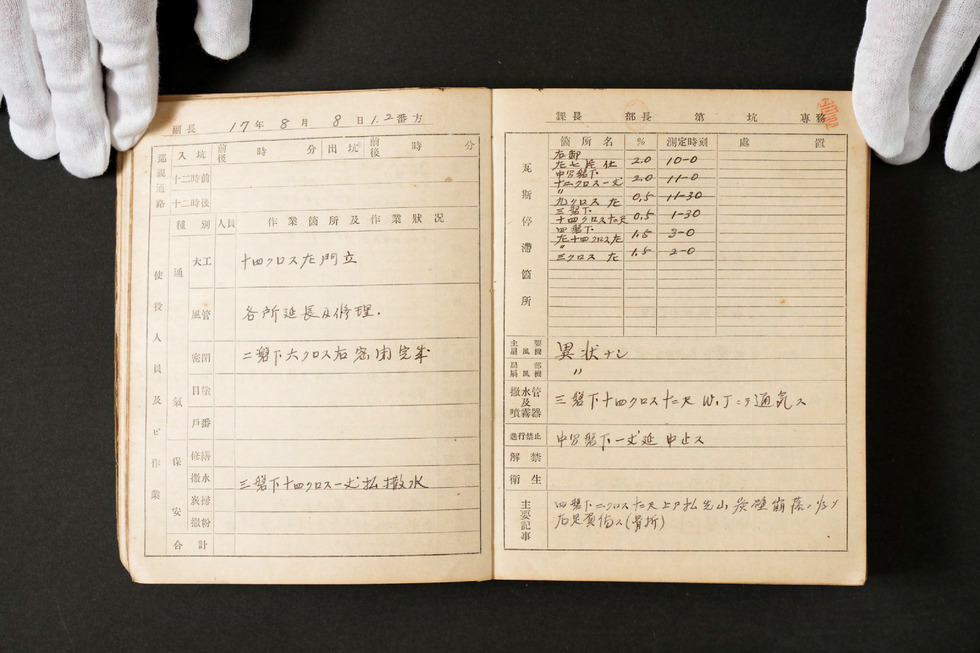 副長 17年 8月 8日 1.2番方
巡視通路 入坑 前後 時 分 出坑 前後 時 分
十二時前
十二時後
使役人員及ビ作業
種別 人員 作業箇所及作業狀况
通氣
大工 十四クロス左門立
風管 各所延長及修理.
密閉 二盤下六クロス右密閉完成
目塗
戸番
保安
修繕
撒水 三盤下十四クロス一丈払撒水
炭掃
撒粉
合計
課長 部長 第 坑 専務
瓦斯停滯箇所
箇所名 % 測定時刻 處置
右卸
左七片仕 2.0 10-0
中部盤下
十二クロス一丈 2.0 11-0
〃
九クロス左 0.5 11-30
三盤下
十四クロス左六尺 0.5 1-30
四盤下
左十四クロス左 1.5 3-0
〃
三クロス左 1.5 2-0
主要扇風機 異状ナシ
局部扇風機 〃
撒水管及噴霧器 三盤下十四クロス十二尺 W.Jニテ通気ス
進行禁止 中部盤下一丈延中止ス
解禁
衛生
主要記事 四盤下二クロス六尺上り払先山炭壁崩落ノ為メ
右足負傷ス(骨折)